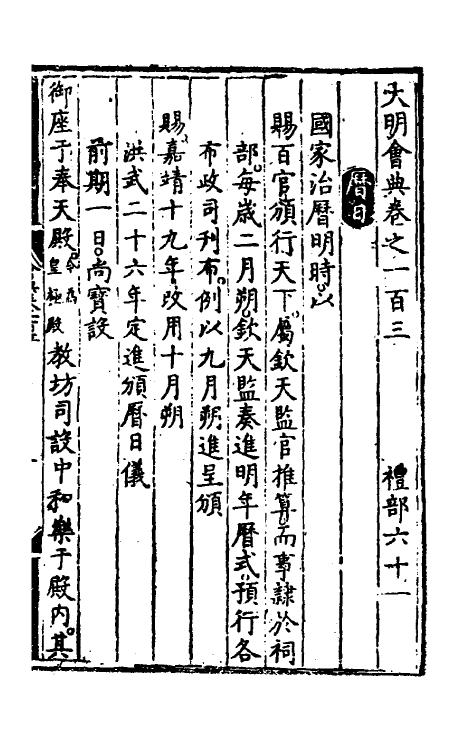 大明會典卷之一百三　禮部六十一
曆日
國家治曆明時。以
賜百官頒行天下。屬欽天監官推算。而事隸於祠
部。每歲二月朔。欽天監奏進明年曆式。預行各
布政司刊布。例以九月朔進呈頒
賜。嘉靖十九年。改用十月朔
洪武二十六年定進頒曆日儀
前期一日。尚寶設
御座于奉天殿。今為皇極殿教坊司設中和樂于殿內。其